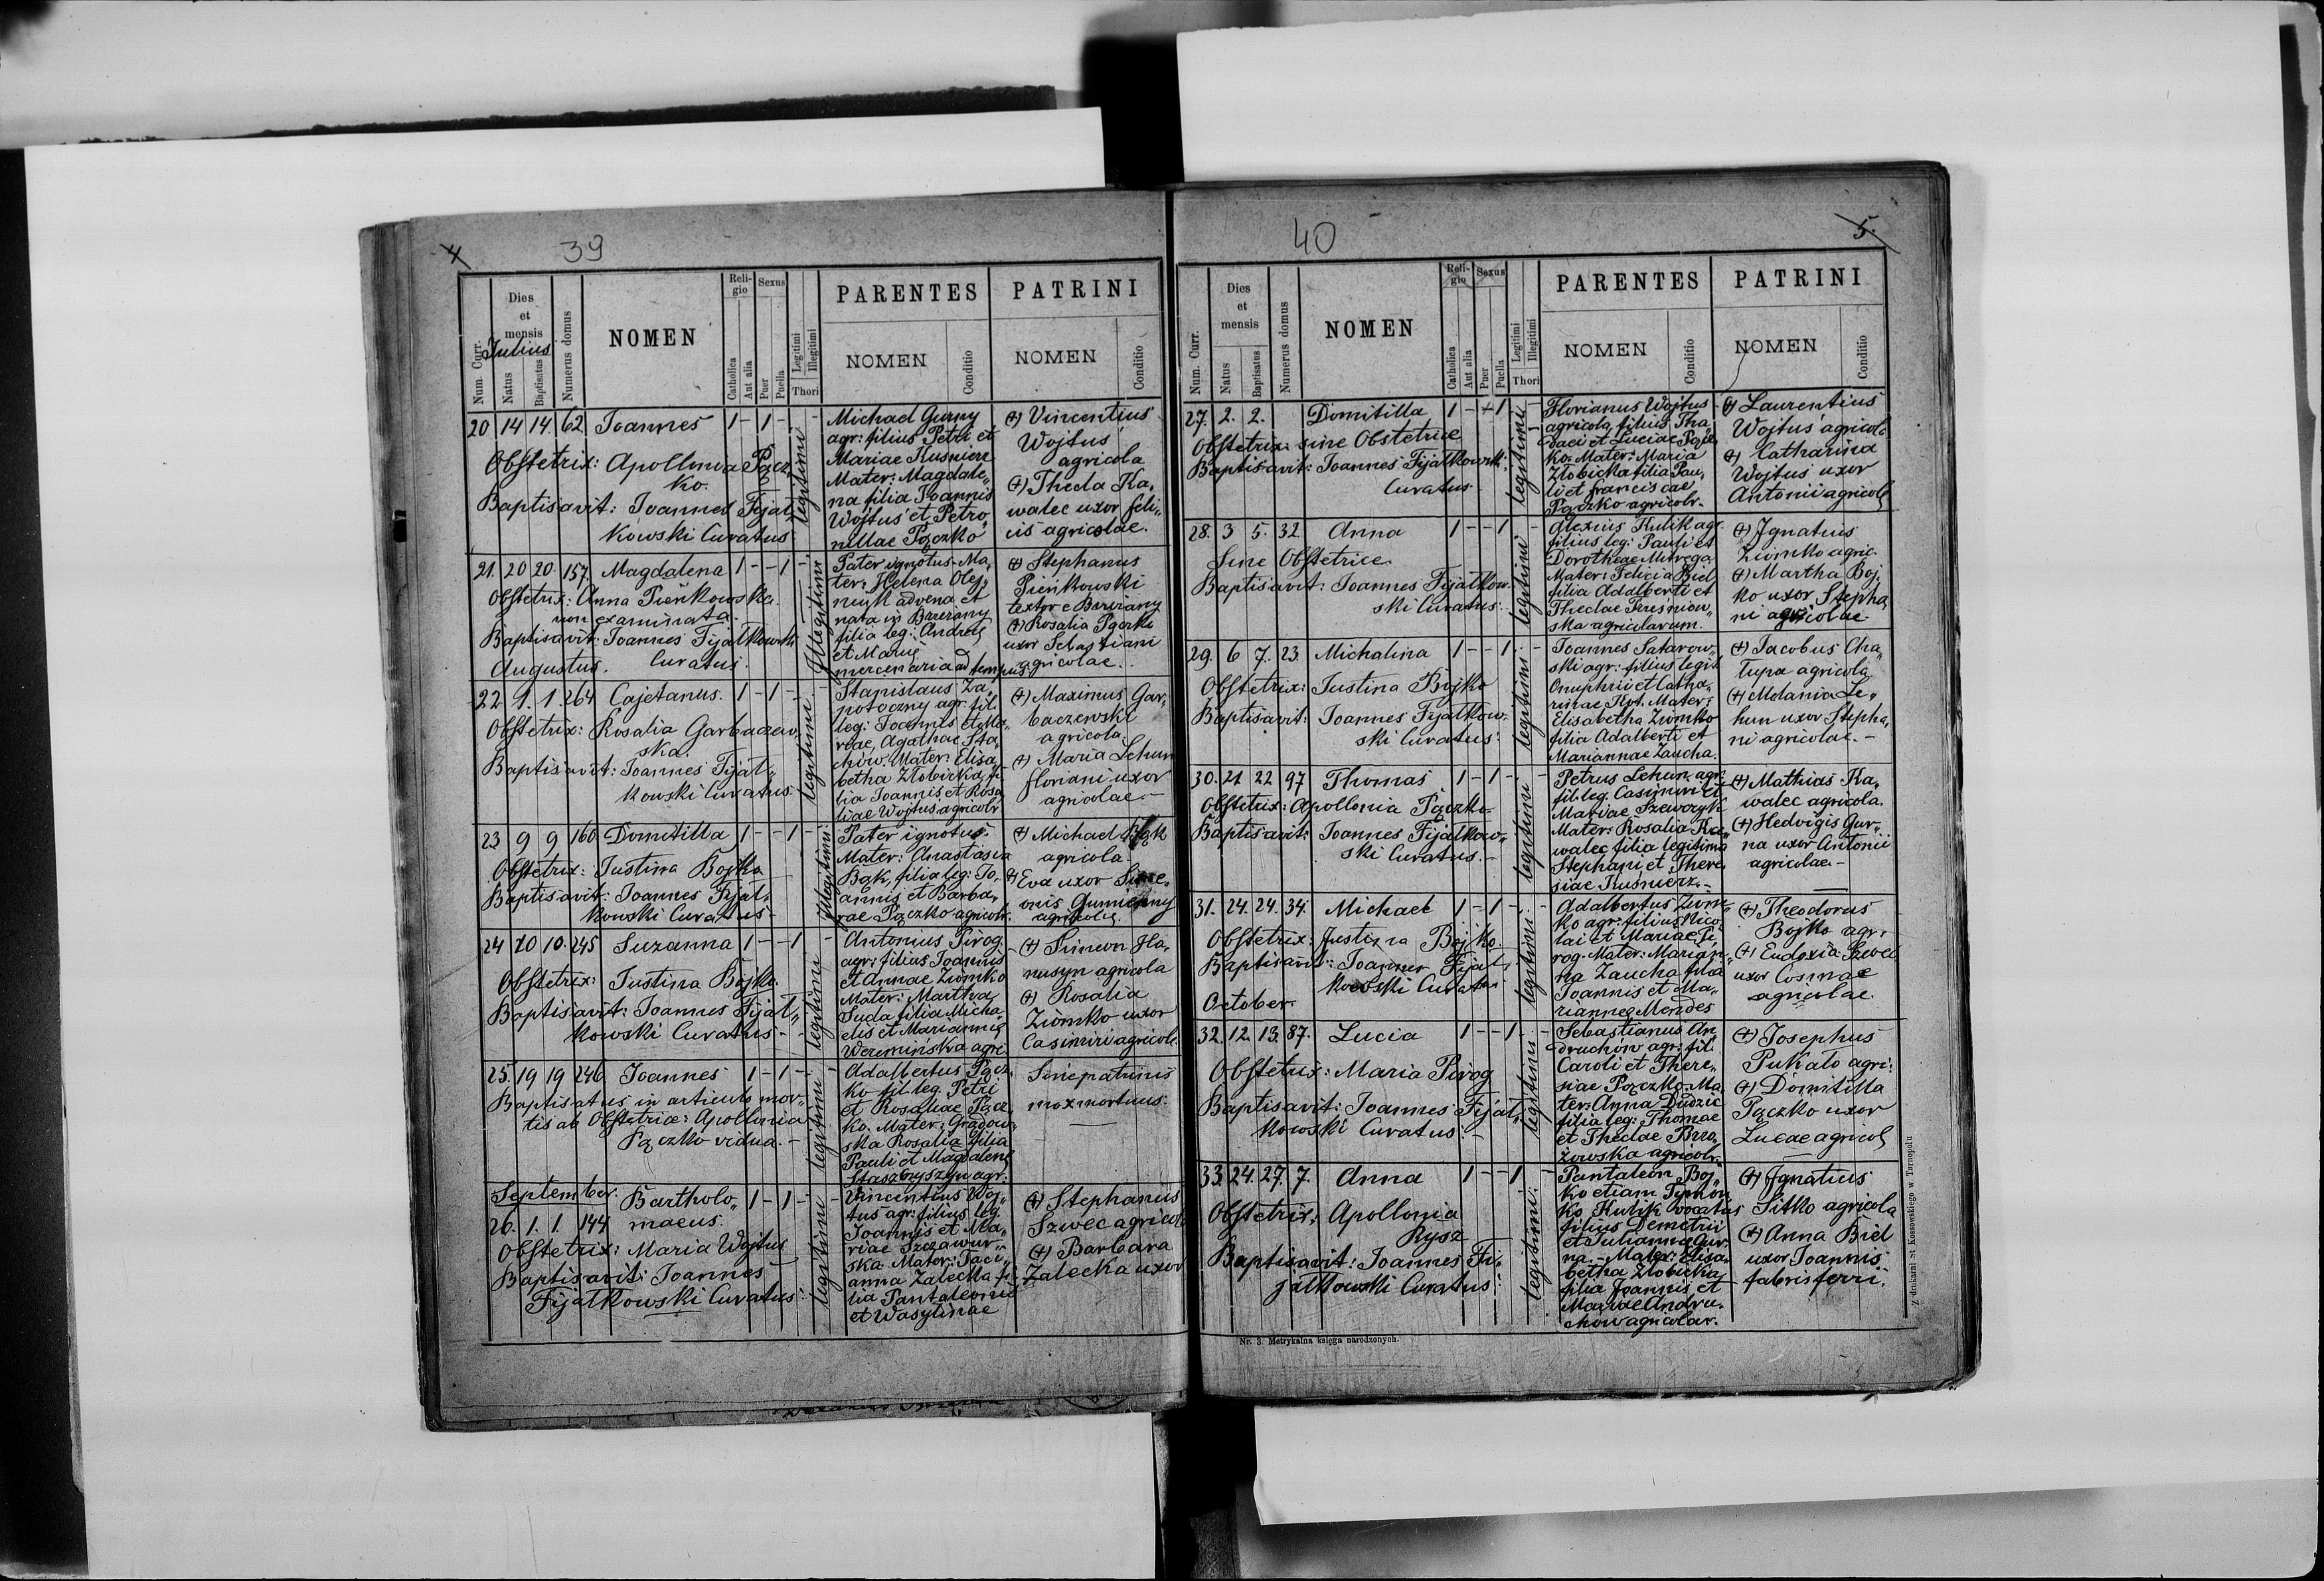 4
39
Num. Curr.
Dies
et
mensis
Julius
Natus
Baptisatus
Numerus domus
NOMEN
Reli-
gio
Catholica
Aut alia
Sexus
Puer
Puella
Legitimi
Illegitimi
Thori
PARENTES
NOMEN
Conditio
PATRINI
NOMEN
Conditio
20 14 14. 62. Joannes 1 - 1 - -
Obstetrix: Apollonia Pącz,,
ko.
Baptisavit: Joannes Fijał,,
kowski Curatus
legitimi
Michael Gurny
agr: filius Petri et
Mariae Kusnierz
Mater: Magdale,,
na filia Joannis
Wojtus et Petro,,
nellae Pączko
(+) Vincentius
Wojtus
agricola
(+) Thecla Ka,,
walec uxor feli,,
cis agricolae.
21. 20 20 157. Magdalena 1 - - 1 -
Obstetrix: Anna Pieńkowska
non examinata.
Baptisavit: Joannes Fijałkowski
Curatus.
Illegitimi
Pater ignotus. Ma,,
ter: Helena Olej,,
niuk advena et
nata in Brzezany
filia leg: Andreę
et Marię
mercenaria ad tempus
(+) Stephanus
Pieńkowski
textor e Brzezany
(+) Rosalia Pączko
uxor Sebastiani
agricolae.
Augustus.
22 1. 1. 264 Cajetanus. 1 - 1 - -
Obstetrix: Rosalia Garbaczew,,
ska
Baptisavit: Joannes Fijał,,
kowski Curatus
legitimi
Stanislaus Za,,
potoczny agr: fil.
leg: Joannis et Ma,,
riae, Agathae Sta,,
chów. Mater: Elisa,,
betha Złobicka, fi,,
lia Joannis et Rosa,,
liae Wojtus agricolr
(+) Maximus Gar,,
baczewski
agricola
(+) Maria Lehun
floriani uxor
agricolae.
23 9 9 160 Domitilla 1 - - 1 -
Obstetrix: Justina Bojko
Baptisavit: Joannes Fijał,,
kowski Curatus
Illegitimi
Pater ignotus.
Mater: Anastasia
Bąk, filia leg: Jo,,
annis et Barba,,
rae Pączko agricolr.
(+) Michael Bąk
agricola
(+) Eva uxor Sime,,
onis Gumienny
agricolę.
24 10 10. 245 Suzanna 1 - - 1 -
Obstetrix: Justina Bojko
Baptisavit: Joannes Fijał,,
kowski Curatus
legitimi
Antonius Pirog
agr: filius Joannis
et Annae Ziomko
Mater: Martha
Suda filia Micha,,
elis et Mariannę
Weremińska agri.
(+) Simeon Ha,,
nusyn agricola
(+) Rosalia
Ziomko uxor
Casimiri agricolę
25. 19 19 246. Joannes 1 - 1 - -
Baptisatus in articulo mor,,
tis ab Obstetrice: Apollonia
Pączko vidua.
legitimi
Adalbertus Pącz,,
ko fil. leg. Petri
et Rosaliae Pącz,,
ko. Mater: Gradow,,
ska Rosalia filia
Pauli et Magdalenę
Staszczyszyn agr:
Sine patrinis
mox mortuus.
September.
26. 1. 1. 144 Bartholo,, 1 - 1 - -
maeus.
Obstetrix: Maria Wojtus
Baptisavit: Joannes
Fijałkowski Curatus
legitimi
Vincentius Woj,,
tus agr: filius leg.
Joannis et Ma,,
riae Szczawur,,
ska Mater: Taci,,
anna Zalecka fi,,
lia Pantaleonis
et Wasylinae
(+) Stephanus
Szwec agricola
(+) Barbara
Zalecka uxor
40
5.
Num. Curr.
Dies
et
mensis
Natus
Baptisatus
Numerus domus
NOMEN
Reli-
gio
Catholica
Aut alia
Sexus
Puer
Puella
Legitimi
Illegitimi
Thori
PARENTES
NOMEN
Conditio
PATRINI
NOMEN
Conditio
27. 2. 2. Domitilla 1 - - 1 -
Obstetrix: sine Obstetrice
Baptisavit: Joannes Fijałkowski
Curatus
legitimi
Florianus Wojtus
agricola, filius Tha,,
daei et Luciae Pącz,,
ko. Mater: Maria
Złobicka filia Pau,,
li et franciscae
Pączko agricolr.
(+) Laurentius
Wojtus agricola
(+) Catharina
Wojtus uxor
Antonii agricolę
28. 3 5. 32. Anna 1 - - 1 -
Sine Obstetrice.
Baptisavit: Joannes Fijałkow,,
ski Curatus.
legitimi
Alexius Kulik agr.
filius leg: Pauli et
Dorotheae Mitręga
Mater: Felicia Biel
filia Adalberti et
Theclae Teresniow,,
ska agricolarum.
(+) Ignatius
Ziomko agric.
(+) Martha Boj,,
ko uxor Stepha,,
ni agricolae.
29. 6 7. 23. Michalina 1 - - 1 -
Obstetrix: Justina Bojko
Baptisavit: Joannes Fijałkow,,
ski Curatus.
legitimi
Joannes Satarow,,
ski agr: filius legit
Onuphrii et Catha,,
rinae Kot. Mater:
Elisabetha Ziomko
filia Adalberti et
Mariannae Zaucha.
(+) Jacobus Cha,,
łupa agricola
(+) Melania Le,,
hun uxor Stepha,,
ni agricolae.
30. 21 22 97 Thomas 1 - 1 - -
Obstetrix: Apollonia Pączko
Baptisavit: Joannes Fijałkow,,
ski Curatus.
legitimi
Petrus Lehun agr:
fil: leg. Casimiri et
Mariae Szewczyk
Mater: Rosalia Ka,,
walec filia legitima
Stephani et There,,
siae Kusnierz.
(+) Mathias Ka,,
walec agricola.
(+) Hedvigis Gur,,
na uxor Antonii
agricolae.
31. 24. 24. 34. Michael 1 - 1 - -
Obstetrix: Justina Bojko.
Baptisavit: Joannes Fijał,,
kowski Curatus.
legitimi
Adalbertus Ziom,,
ko agr: filius Nico,,
lai et Mariae Pi,,
rog. Mater: Marian,,
na Zaucha filia
Joannis et Ma,,
riannę Mendes
(+) Theodorus
Bojko agr:
(+) Eudoxia Szwec
uxor Cosmae
agricolae.
October.
32. 12. 13. 87. Lucia 1 - - 1 -
Obstetrix: Maria Pirog
Baptisavit: Joannes Fijał,,
kowski Curatus.
legitimi
Sebastianus An,,
druchów agr: fil.
Caroli et There,,
siae Pączko. Ma,,
ter: Anna Dudzic
filia leg: Thomae
et Theclae Brzo,,
zowska agricolr.
(+) Josephus
Pukało agri:
(+) Domitilla
Pączko uxor
Lucae agricolę
33. 24. 27. 7. Anna 1 - - 1 -
Obstetrix: Apollonia
Rysz
Baptisavit: Joannes Fi,,
jałkowski Curatus.
legitimi
Pantaleon Boj,,
ko etiam Tymon
ko Kulik vocatus
filius Demetrii
et Juliannę Gur,,
na. Mater: Elisa,,
betha Złobicka
filia Joannis et
Mariae Andru,,
chow agricolar.
(+) Ignatius
Sitko agricola
(+) Anna Biel
uxor Joannis
fabris ferri.
Nr. 3. Metrykalna księga narodzonych.
Z drukarni St. Kossowskiego w Tarnopolu